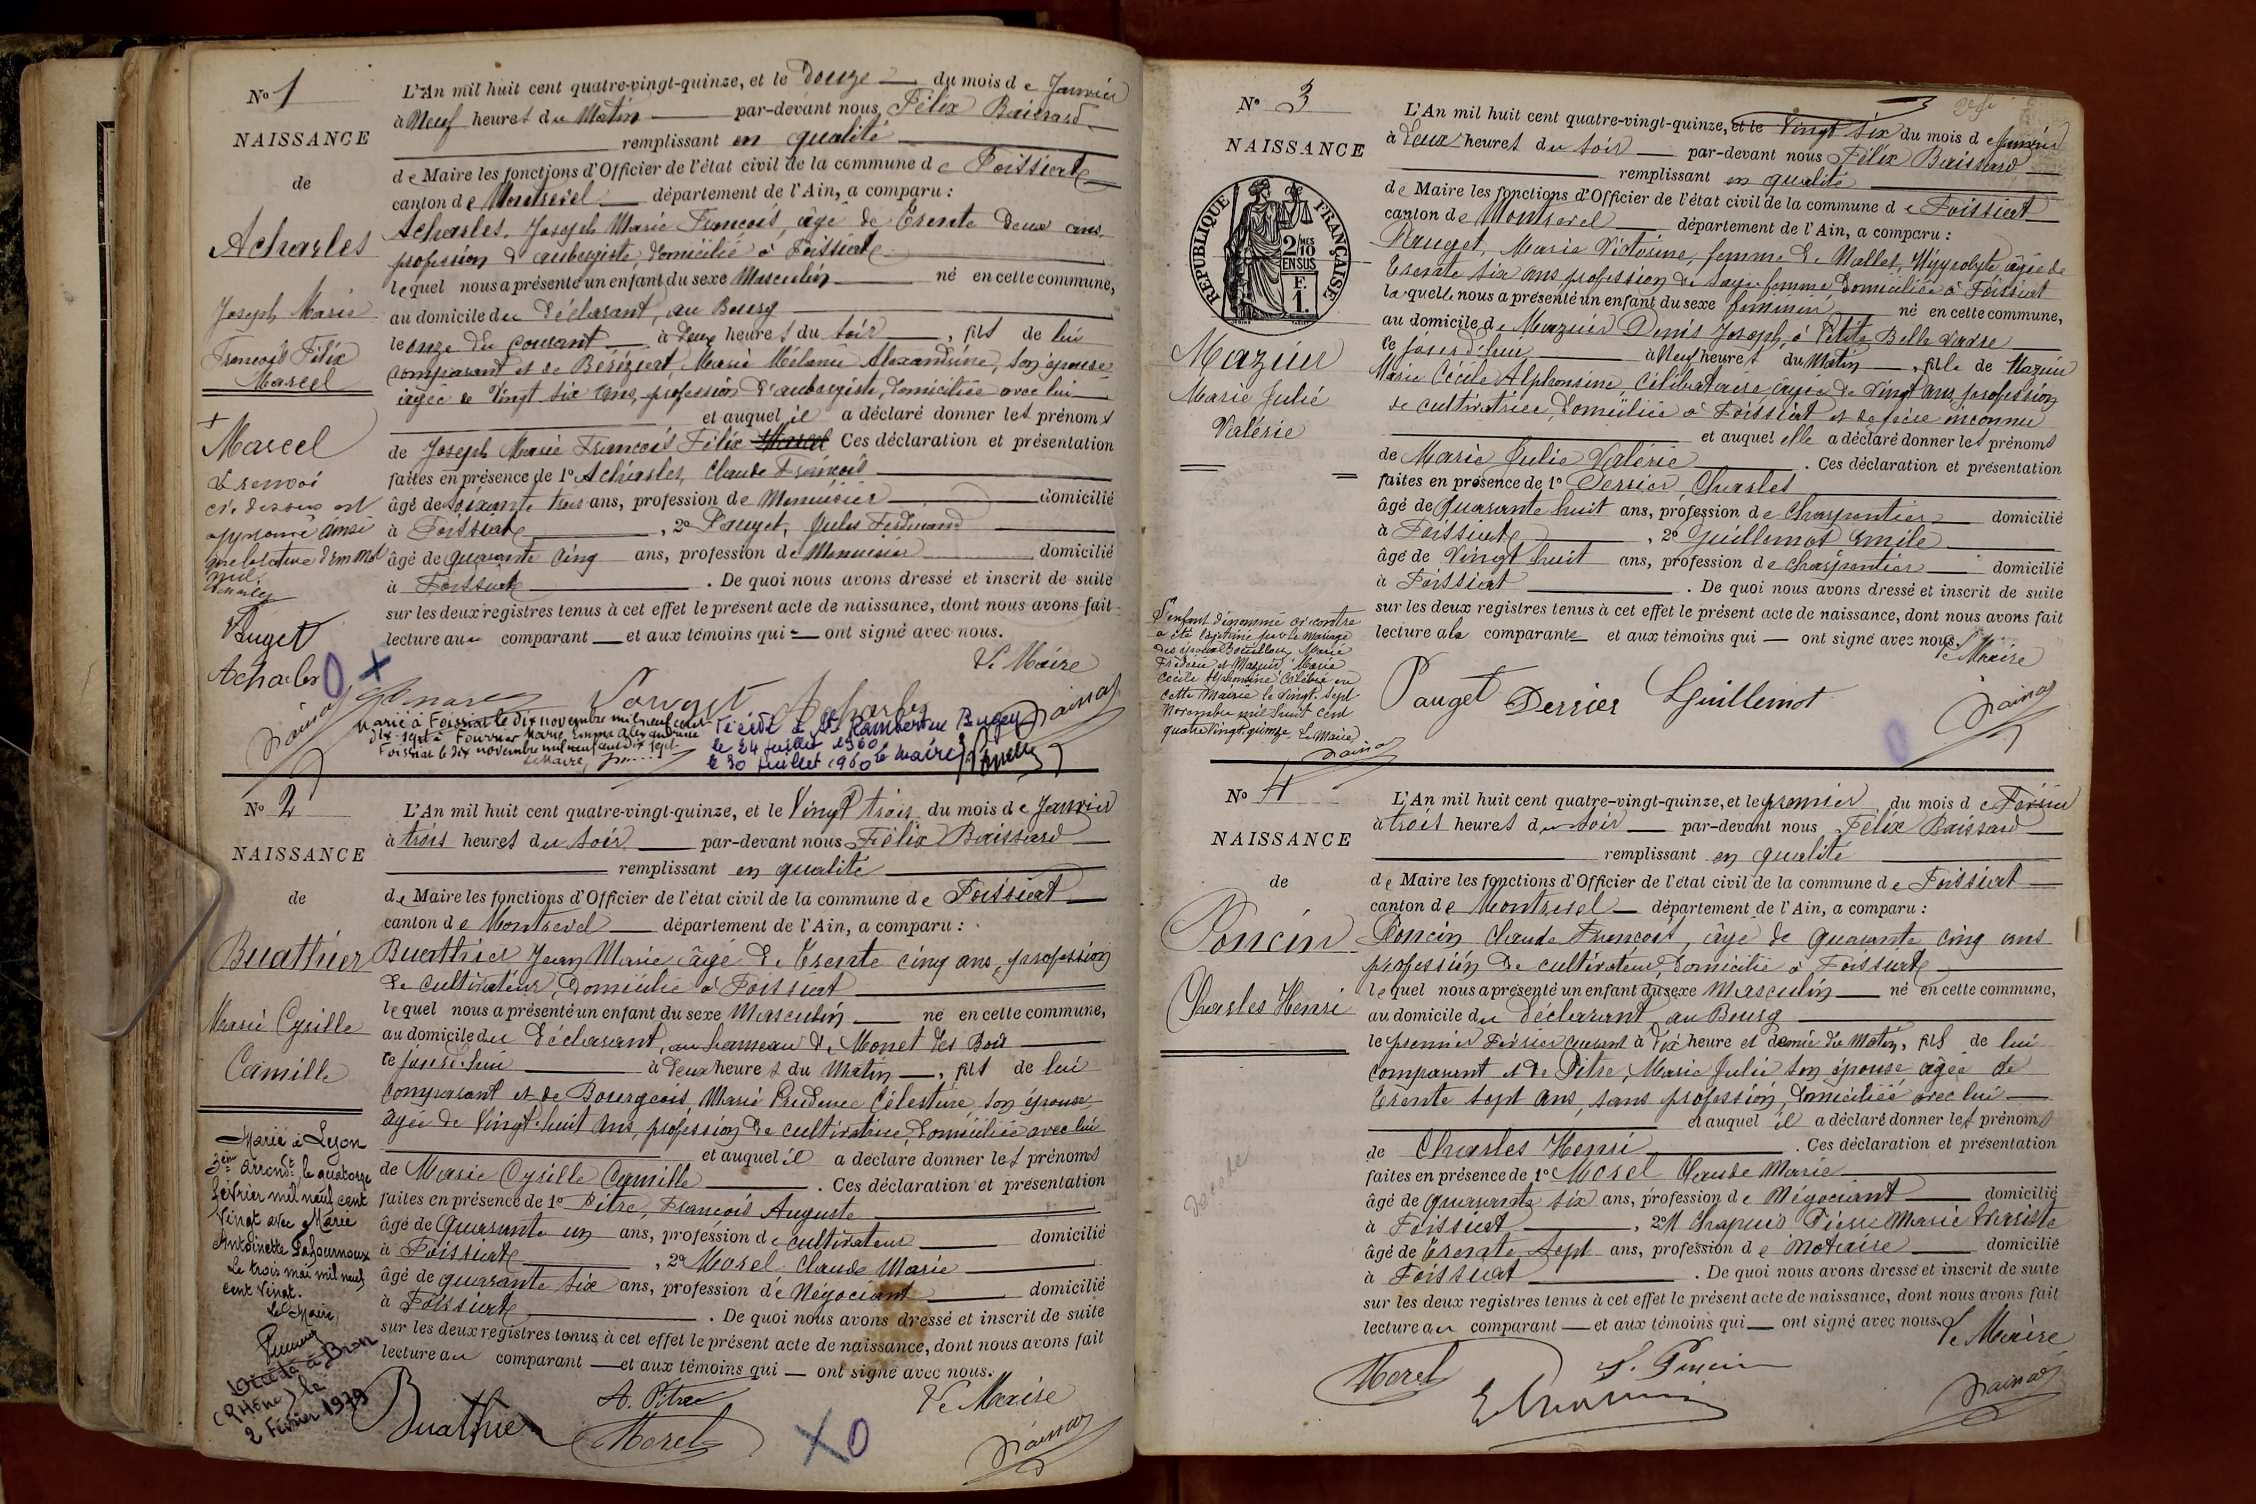 N° 1
NAISSANCE
de
Acharles
Joseph Marie
François Félix
Marcel
+
Marcel
Le renvoi
ci-dessus est
approuvé ainsi
que la rature d'un mot
nul
Pauget
Acharles
L'An mil huit cent quatre-vingt-quinze, et le Douze du mois de Janvier
à Neuf heures du Matin par-devant nous Félix Baissard
remplissant en qualité
de Maire les fonctions d'Officier de l'état civil de la commune de Foissiat
canton de Montrevel département de l'Ain, a comparu :
Acharles, Joseph Marie François, âgé de Trente deux ans
profession d'aubergiste, domicilié à Foissiat
lequel nous a présenté un enfant du sexe Masculin né en cette commune,
au domicile du Déclarant, au Bourg
le onze du courant à deux heures du soir, fils de lui
comparant et de Béréziat, Marie Mélanie Alexandrine, son épouse
âgée de Vingt six ans, profession d'aubergiste, domiciliée avec lui
et auquel il a déclaré donner les prénoms
de Joseph Marie François Félix Marcel Ces déclaration et présentation
faites en présence de 1° Acharles, Claude François
âgé de soixante trois ans, profession de Menuisier domicilié
à Foissiat, 2° Pauget, Jules Ferdinand
âgé de quarante cinq ans, profession de Menuisier domicilié
à Foissiat. De quoi nous avons dressé et inscrit de suite
sur les deux registres tenus à cet effet le présent acte de naissance, dont nous avons fait
lecture au comparant et aux témoins qui ont signé avec nous.
Le Maire
Pauget Acharles
Marié à Foissiat le dix novembre mil neuf cent
dix-sept à Fournier Marie Emma Alexandrine
Foissiat le dix novembre mil neuf cent dix sept
Le Maire,
Décédé à St Rambert en Bugey
le 24 juillet 1960
le 30 juillet 1960 le Maire
N° 2
NAISSANCE
de
Buathier
Marie Cyrille
Camille
Marié à Lyon
3ème Arrondt le quatorze
février mil neuf cent
vingt avec Marie
Antoinette Lafournoux
Le trois mai mil neuf
cent vingt.
Le Maire,
Décédé à Bron
(Rhône) le
2 Février 1979
L'An mil huit cent quatre-vingt-quinze, et le Vingt trois du mois de Janvier
à trois heures du soir par-devant nous Félix Baissard
remplissant en qualité
de Maire les fonctions d'Officier de l'état civil de la commune de Foissiat
canton de Montrevel département de l'Ain, a comparu :
Buathier Jean Marie âgé de Trente cinq ans, profession
de cultivateur, domicilié à Foissiat
lequel nous a présenté un enfant du sexe Masculin né en cette commune,
au domicile du Déclarant, au hameau de Monet les Bois
ce jourd'hui à deux heures du Matin, fils de lui
comparant et de Bourgeois, Marie Prudence Célestine, son épouse
âgée de Vingt-huit ans, profession de cultivatrice, domiciliée avec lui
et auquel il a déclaré donner les prénoms
de Marie Cyrille Camille. Ces déclaration et présentation
faites en présence de 1° Pitre, François Auguste
âgé de Quarante un ans, profession de cultivateur domicilié
à Foissiat, 2° Morel Claude Marie
âgé de quarante six ans, profession de Négociant domicilié
à Foissiat. De quoi nous avons dressé et inscrit de suite
sur les deux registres tenus à cet effet le présent acte de naissance, dont nous avons fait
lecture au comparant et aux témoins qui ont signé avec nous.
Le Maire
Buathier A. Pitre Morel
N° 3
NAISSANCE
de
RÉPUBLIQUE FRANÇAISE
2/10MES
EN SUS
F.
1.
Mazuir
Marie Julie
Valérie
L'enfant dénommé ci-contre
a été légitimé par le mariage
des époux Bouillou, Marie
Frédéric et Mazuir, Marie
Cécile Alphonsine célébré en
cette Mairie le vingt-sept
Novembre mil huit cent
quatre vingt quinze. Le Maire
3
L'An mil huit cent quatre-vingt-quinze, et le Vingt six du mois de Janvier
à deux heures du soir par-devant nous Félix Baissard
remplissant en qualité
de Maire les fonctions d'Officier de l'état civil de la commune de Foissiat
canton de Montrevel département de l'Ain, a comparu :
Pauget, Marie Victorine, femme de Mallet, Hippolyte âgée de
Trente six ans profession de sage-femme domiciliée à Foissiat
laquelle nous a présenté un enfant du sexe féminin né en cette commune,
au domicile de Mazuir Denis Joseph, à Petite Belle Vavre
ce jourd'hui à Neuf heures du Matin, fille de Mazuir
Marie Cécile Alphonsine, célibataire âgée de Vingt ans, profession
de cultivatrice, domiciliée à Foissiat et de père inconnu
et auquel elle a déclaré donner les prénoms
de Marie Julie Valérie. Ces déclaration et présentation
faites en présence de 1° Perrier Charles
âgé de Quarante huit ans, profession de Charpentier domicilié
à Foissiat, 2° Guillemot Emile
âgé de Vingt huit ans, profession de charpentier domicilié
à Foissiat. De quoi nous avons dressé et inscrit de suite
sur les deux registres tenus à cet effet le présent acte de naissance, dont nous avons fait
lecture à la comparante et aux témoins qui ont signé avec nous.
Le Maire
Pauget Perrier Guillemot
N° 4
NAISSANCE
de
Poncin
Charles Henri
Décédé
L'An mil huit cent quatre-vingt-quinze, et le premier du mois de Février
à trois heures du soir par-devant nous Félix Baissard
remplissant en qualité
de Maire les fonctions d'Officier de l'état civil de la commune de Foissiat
canton de Montrevel département de l'Ain, a comparu :
Poncin Claude François, âgé de quarante cinq ans
profession de cultivateur, domicilié à Foissiat
lequel nous a présenté un enfant du sexe Masculin né en cette commune,
au domicile du Déclarant au Bourg
le premier Février courant à Dix heure et demie du Matin, fils de lui
comparant et de Pitre, Marie Julie son épouse âgée de
Trente sept ans, sans profession, domiciliée avec lui
et auquel il a déclaré donner les prénoms
de Charles Henri. Ces déclaration et présentation
faites en présence de 1° Morel Claude Marie
âgé de Quarante six ans, profession de Négociant domicilié
à Foissiat, 2° M Chapuis Pierre Marie Evariste
âgé de Trente Sept ans, profession de Notaire domicilié
à Foissiat. De quoi nous avons dressé et inscrit de suite
sur les deux registres tenus à cet effet le présent acte de naissance, dont nous avons fait
lecture au comparant et aux témoins qui ont signé avec nous.
Le Maire
Morel Poncin